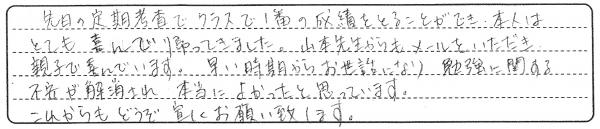 先日の定期考査でクラスで1番の成績をとることができ、本人は
とても喜んで帰ってきました。山本先生からもメールをいただき
親子で喜んでいます。早い時期からお世話になり勉強に関する
不安が解消され本当によかったと思っています。
これからもどうぞ宜しくお願い致します。